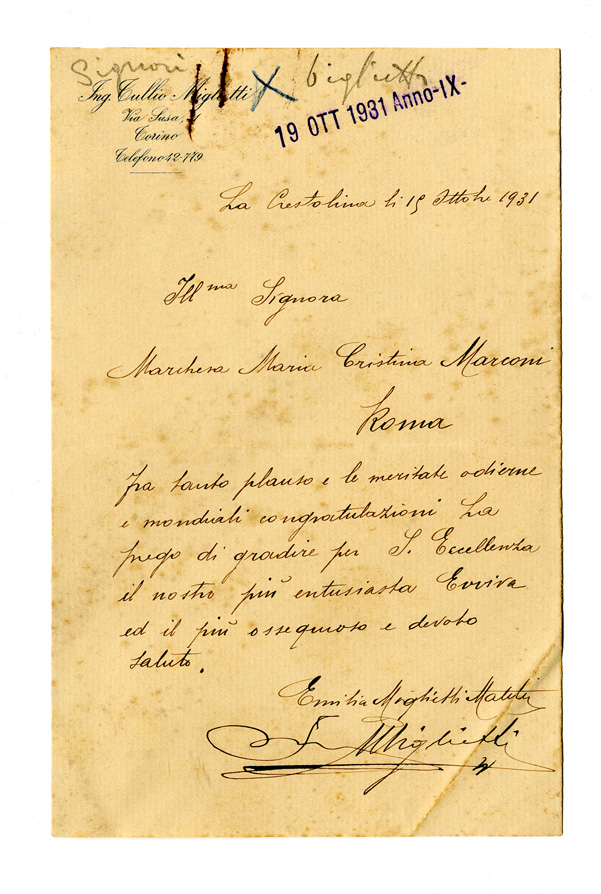 Signori biglietto
Ing. Tullio Miglietti
Via Susa, 1
Torino
Telefono 42-779
19 OTT 1931 Anno-IX-
La Crestolina li 15 Ottobre 1931
Ill ma Signora
Marchesa Maria Cristina Marconi
Roma
fra tanto plauso e le meritate odierne
e mondiali congratulazioni La
prego di gradire per S. Eccellenza
il nostro più entusiasta Evviva
ed il più ossequioso e devoto
saluto.
Emilia Miglietti
Miglietti